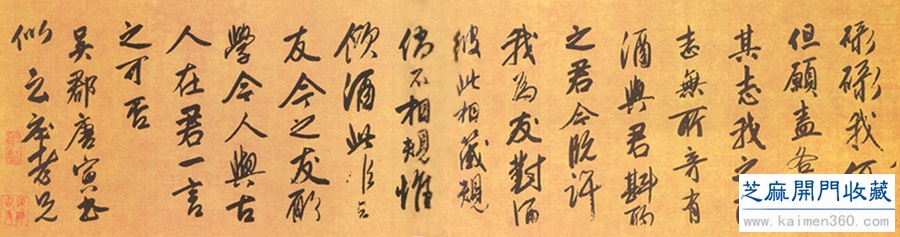 碌碌我何
但願盡各
其志我之
志無所寄有
酒與君斟酌
之君今既許
我為友對酒
彼此相箴規
倘不相規惟
飲酒此
友今之友歟
學今人與古
人在君一言
之可否
吳郡唐寅書
似老兄
芝麻開門收藏
www.kaimen360.com